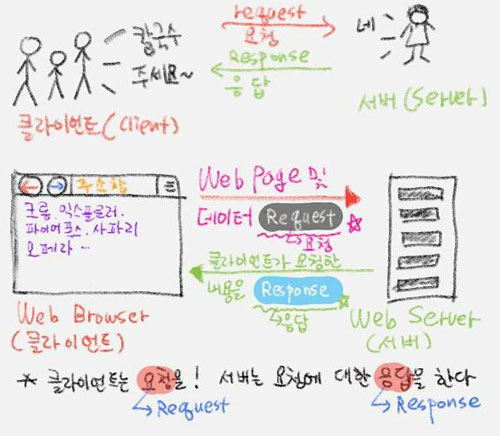 칼국수
주세요~
request
요청
Response
응답
네
클라이언트(Client)
서버(Server)
주소창
크롬. 익스플로러.
파이어폭스. 사파리
오페라 ...
Web Page 및
데이터 Request
요청
클라이언트가 요청한
내용을 Response
응답
Web Browser
(클라이언트)
Web Server
(서버)
* 클라이언트는 요청을! 서버는 요청에 대한 응답을 한다
Request
Response